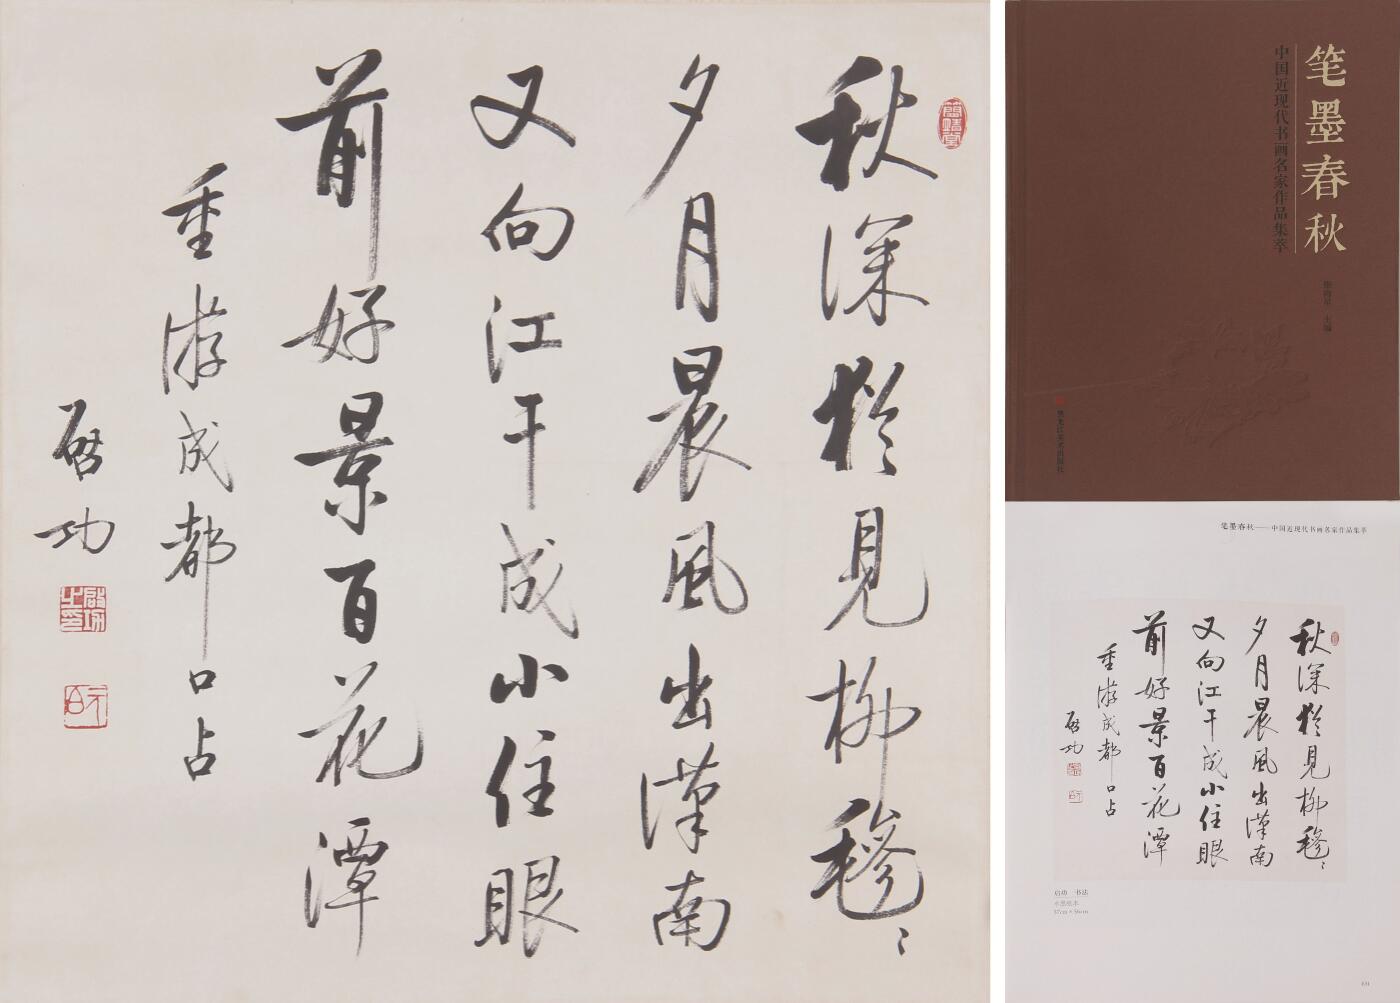 秋深犹见柳毵〻
夕月晨風出漢南
又向江干成小住眼
前好景百花潭
重游成都口占
啓功
啟功之印
元白
笔墨春秋
中国近现代书画名家作品集萃
主编
黑龙江美术出版社
笔墨春秋——中国近现代书画名家作品集萃
秋深犹见柳毵〻
夕月晨風出漢南
又向江干成小住眼
前好景百花潭
重游成都口占
啓功
启功 书法
水墨纸本